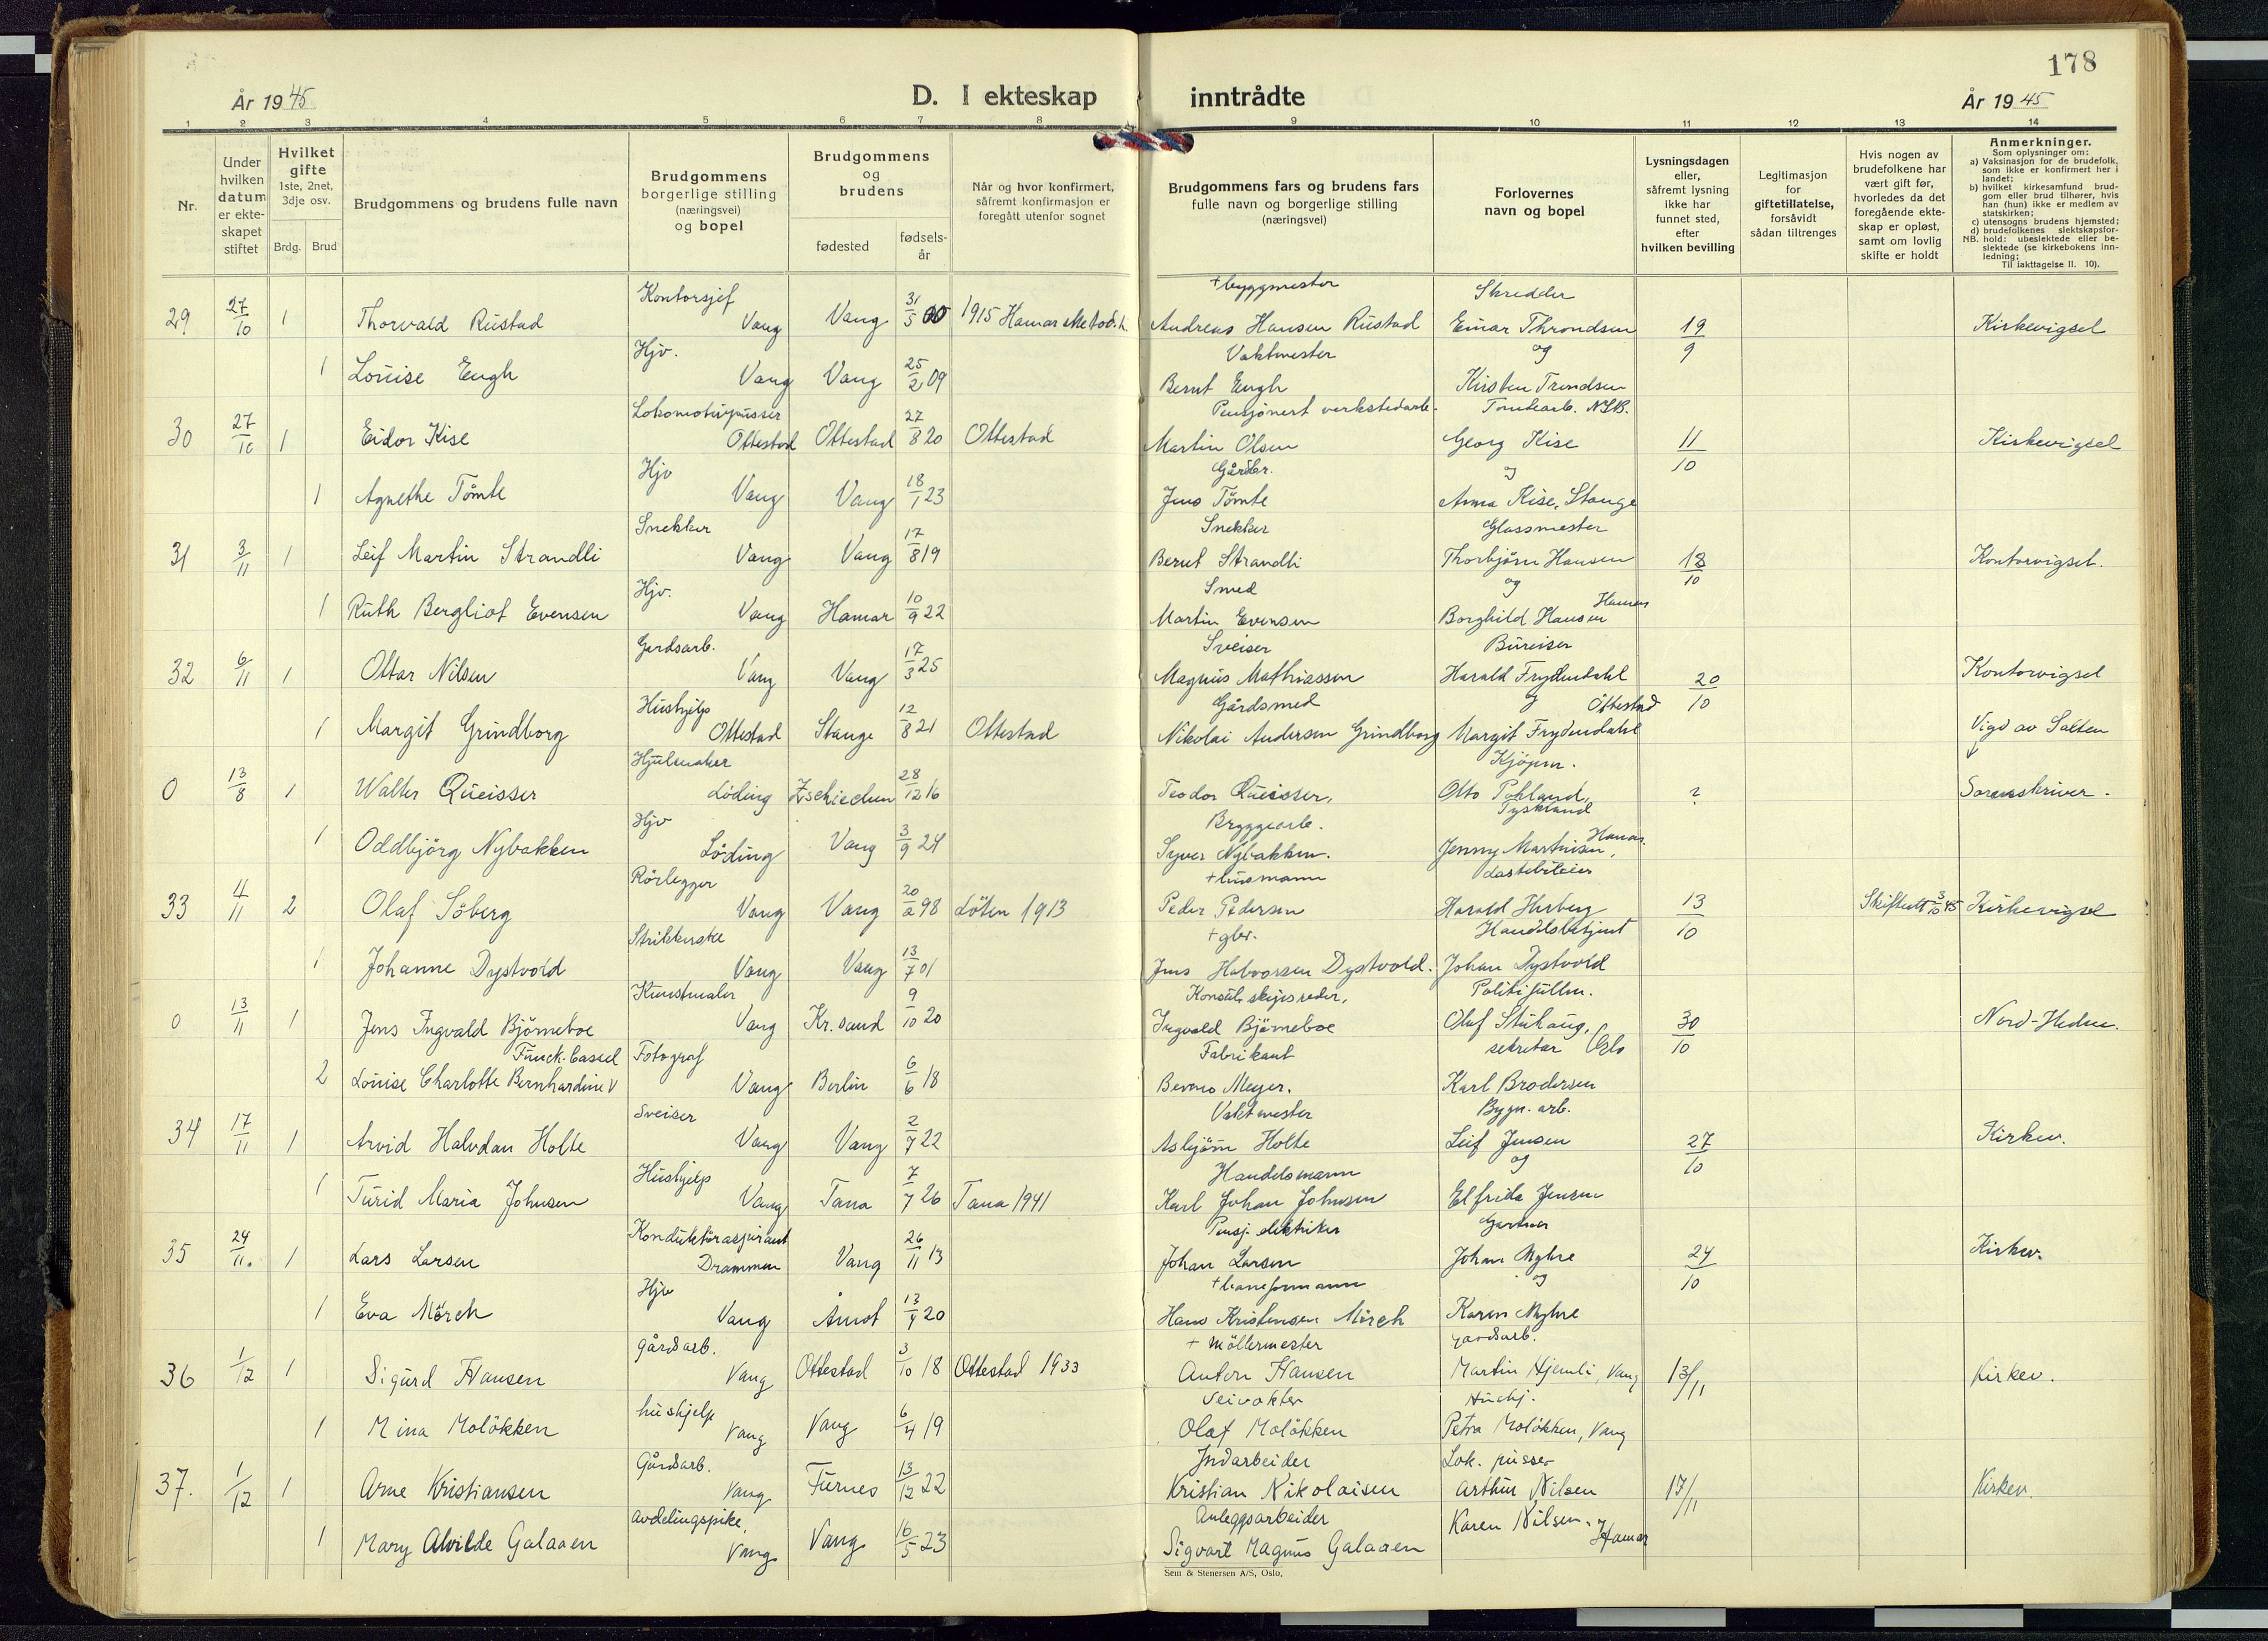 178
År 1945
D. I ekteskap inntrådte
År 1945
1 2 3 4 5 6 7 8 9 10 11 12 13 14
Nr.
Under hvilken datum er ekteskapet stiftet
Hvilket gifte 1ste, 2net, 3dje osv.
Brdg. Brud
Brudgommens og brudens fulle navn
Brudgommens borgerlige stilling (næringsvei) og bopel
Brudgommens og brudens
fødested
fødsels-år
Når og hvor konfirmert, såfremt konfirmasjon er foregått utenfor sognet
Brudgommens fars og brudens fars fulle navn og borgerlige stilling (næringsvei)
Forlovernes navn og bopel
Lysningsdagen eller, såfremt lysning ikke har funnet sted, efter hvilken bevilling
Legitimasjon for giftetillatelse, forsåvidt sådan tiltrenges
Hvis nogen av brudefolkene har vært gift før, hvorledes da det foregående ekteskap er opløst, samt om lovlig skifte er holdt
Anmerkninger.
Som oplysninger om:
a) Vaksinasjon for de brudefolk, som ikke er konfirmert her i landet;
b) hvilket kirkesamfund brudgom eller brud tilhører, hvis han (hun) ikke er medlem av statskirken;
c) utensogns brudens hjemsted;
d) brudefolkenes slektskapsforhold: ubeslektede eller beslektede (se kirkebokens innledning;
NB. Til iakttagelse II. 10).
29 27/10 1 Thorvald Rustad Kontorsjef Vang Vang 31/5 00 1915 Hamar Metod.k. + byggmester Andreas Hansen Rustad Skredder Einar Throndsen 19/9 Kirkevigsel
1 Louise Engh Hjv. Vang Vang 25/2 09 Vaktmester Bernt Engh og Kirsten Trondsen
30 27/10 1 Eidor Kise Lokomotivpusser Ottestad Ottestad 27/8 20 Ottestad Pensjonert verkstedarb. Martin Olsen Tomtearb. NSB. Georg Kise 11/10 Kirkevigsel
1 Agnethe Tømte Hjv Vang Vang 18/1 23 Gårdbr. Jens Tømte og Anna Kise, Stange
31 3/11 1 Leif Martin Strandli Snekker Vang Vang 17/8 19 Snekker Bernt Strandli Glassmester Thorbjørn Hansen 18/10 Kontorvigsel.
1 Ruth Bergliot Evensen Hjv. Vang Hamar 10/9 22 Smed Martin Evensen og Borghild Hansen Hamar
32 6/11 1 Ottar Nilsen Gardsarb. Vang Vang 17/3 25 Sveiser Magnus Mathiassen Bureiser Harald Frydendahl 20/10 Kontorvigsel
1 Margit Grindborg Hushjelp Ottestad Stange 12/8 21 Ottestad Gårdsmed Nikolai Andersen Grindborg og Ottestad Margit Frydendahl Vigd av Salten
0 13/8 1 Walter Queisser Hjulmaker Løding Zschiechen 28/12 16 Teodor Queisser, Kjøpm. Otto Pohland, Tyskland ? Sorenskriver.
1 Oddbjørg Nybakken Hjv Løding Vang 3/9 24 Bryggearb. Syver Nybakken. Jenny Martinsen, Hamar.
33 4/11 2 Olaf Søberg Rørlegger Vang Vang 20/2 98 Løten 1913 + husmann Peder Pedersen Lastebileier Harald Herberg 13/10 Skifteatt 3/10 45 Kirkevigsel
1 Johanne Dystvold Strikkerske Vang Vang 13/7 01 + gbr. Jens Halvorsen Dystvold. Handelsbetjent Johan Dystvold
0 13/11 1 Jens Ingvald Bjørneboe Kunstmaler Vang Kr.sand 9/10 20 Konsul, skipsreder, Ingvald Bjørneboe Politifullm. Olaf Stuhaug, 30/10 Nord-Hedm.
2 Louise Charlotte Bernhardine V Funck-Cassel Fotograf Vang Berlin 6/6 18 Fabrikant Benno Meyer. sekretær Oslo Karl Brodersen
34 17/11 1 Arvid Halvdan Holte Sveiser Vang Vang 2/7 22 Vaktmester Asbjørn Holte Bygn. arb. Leif Jensen 27/10 Kirkev.
1 Turid Maria Johnsen Hushjelp Vang Tana 7/7 26 Tana 1941 Handelsmann Karl Johan Johnsen og Elfrida Jensen
35 24/11. 1 Lars Larsen Konduktøraspirant Drammen Vang 26/11 13 Pensj. elektriker Johan Larsen Gartner Johan Myhre 24/10 Kirkev.
1 Eva Mørch Hjv Vang Åmot 13/4 20 + baneformann Hans Kristensen Mørch og Karen Myhre
36 1/12 1 Sigurd Hansen gårdsarb. Vang Ottestad 3/10 18 Ottestad 1933 + Møllermester Anton Hansen gardsarb. Martin Hjemli, Vang 13/11 Kirkev.
1 Mina Moløkken hushjelp Vang Vang 6/4 19 Veivokter Olaf Moløkken Hushj. Petra Moløkken, Vang
37. 1/12 1 Arne Kristiansen Gårdsarb. Vang Furnes 13/12 22 Jndarbeider Kristian Nikolaisen Lok. pusser Arthur Nilsen 17/11 Kirkev.
1 Mary Alvilde Galaaen Avdelingspike, Vang. Vang 16/5 23 Anleggsarbeider Sigvart Magnus Galaaen Karen Nilsen. Hamar
Sem & Stenersen A/S, Oslo.